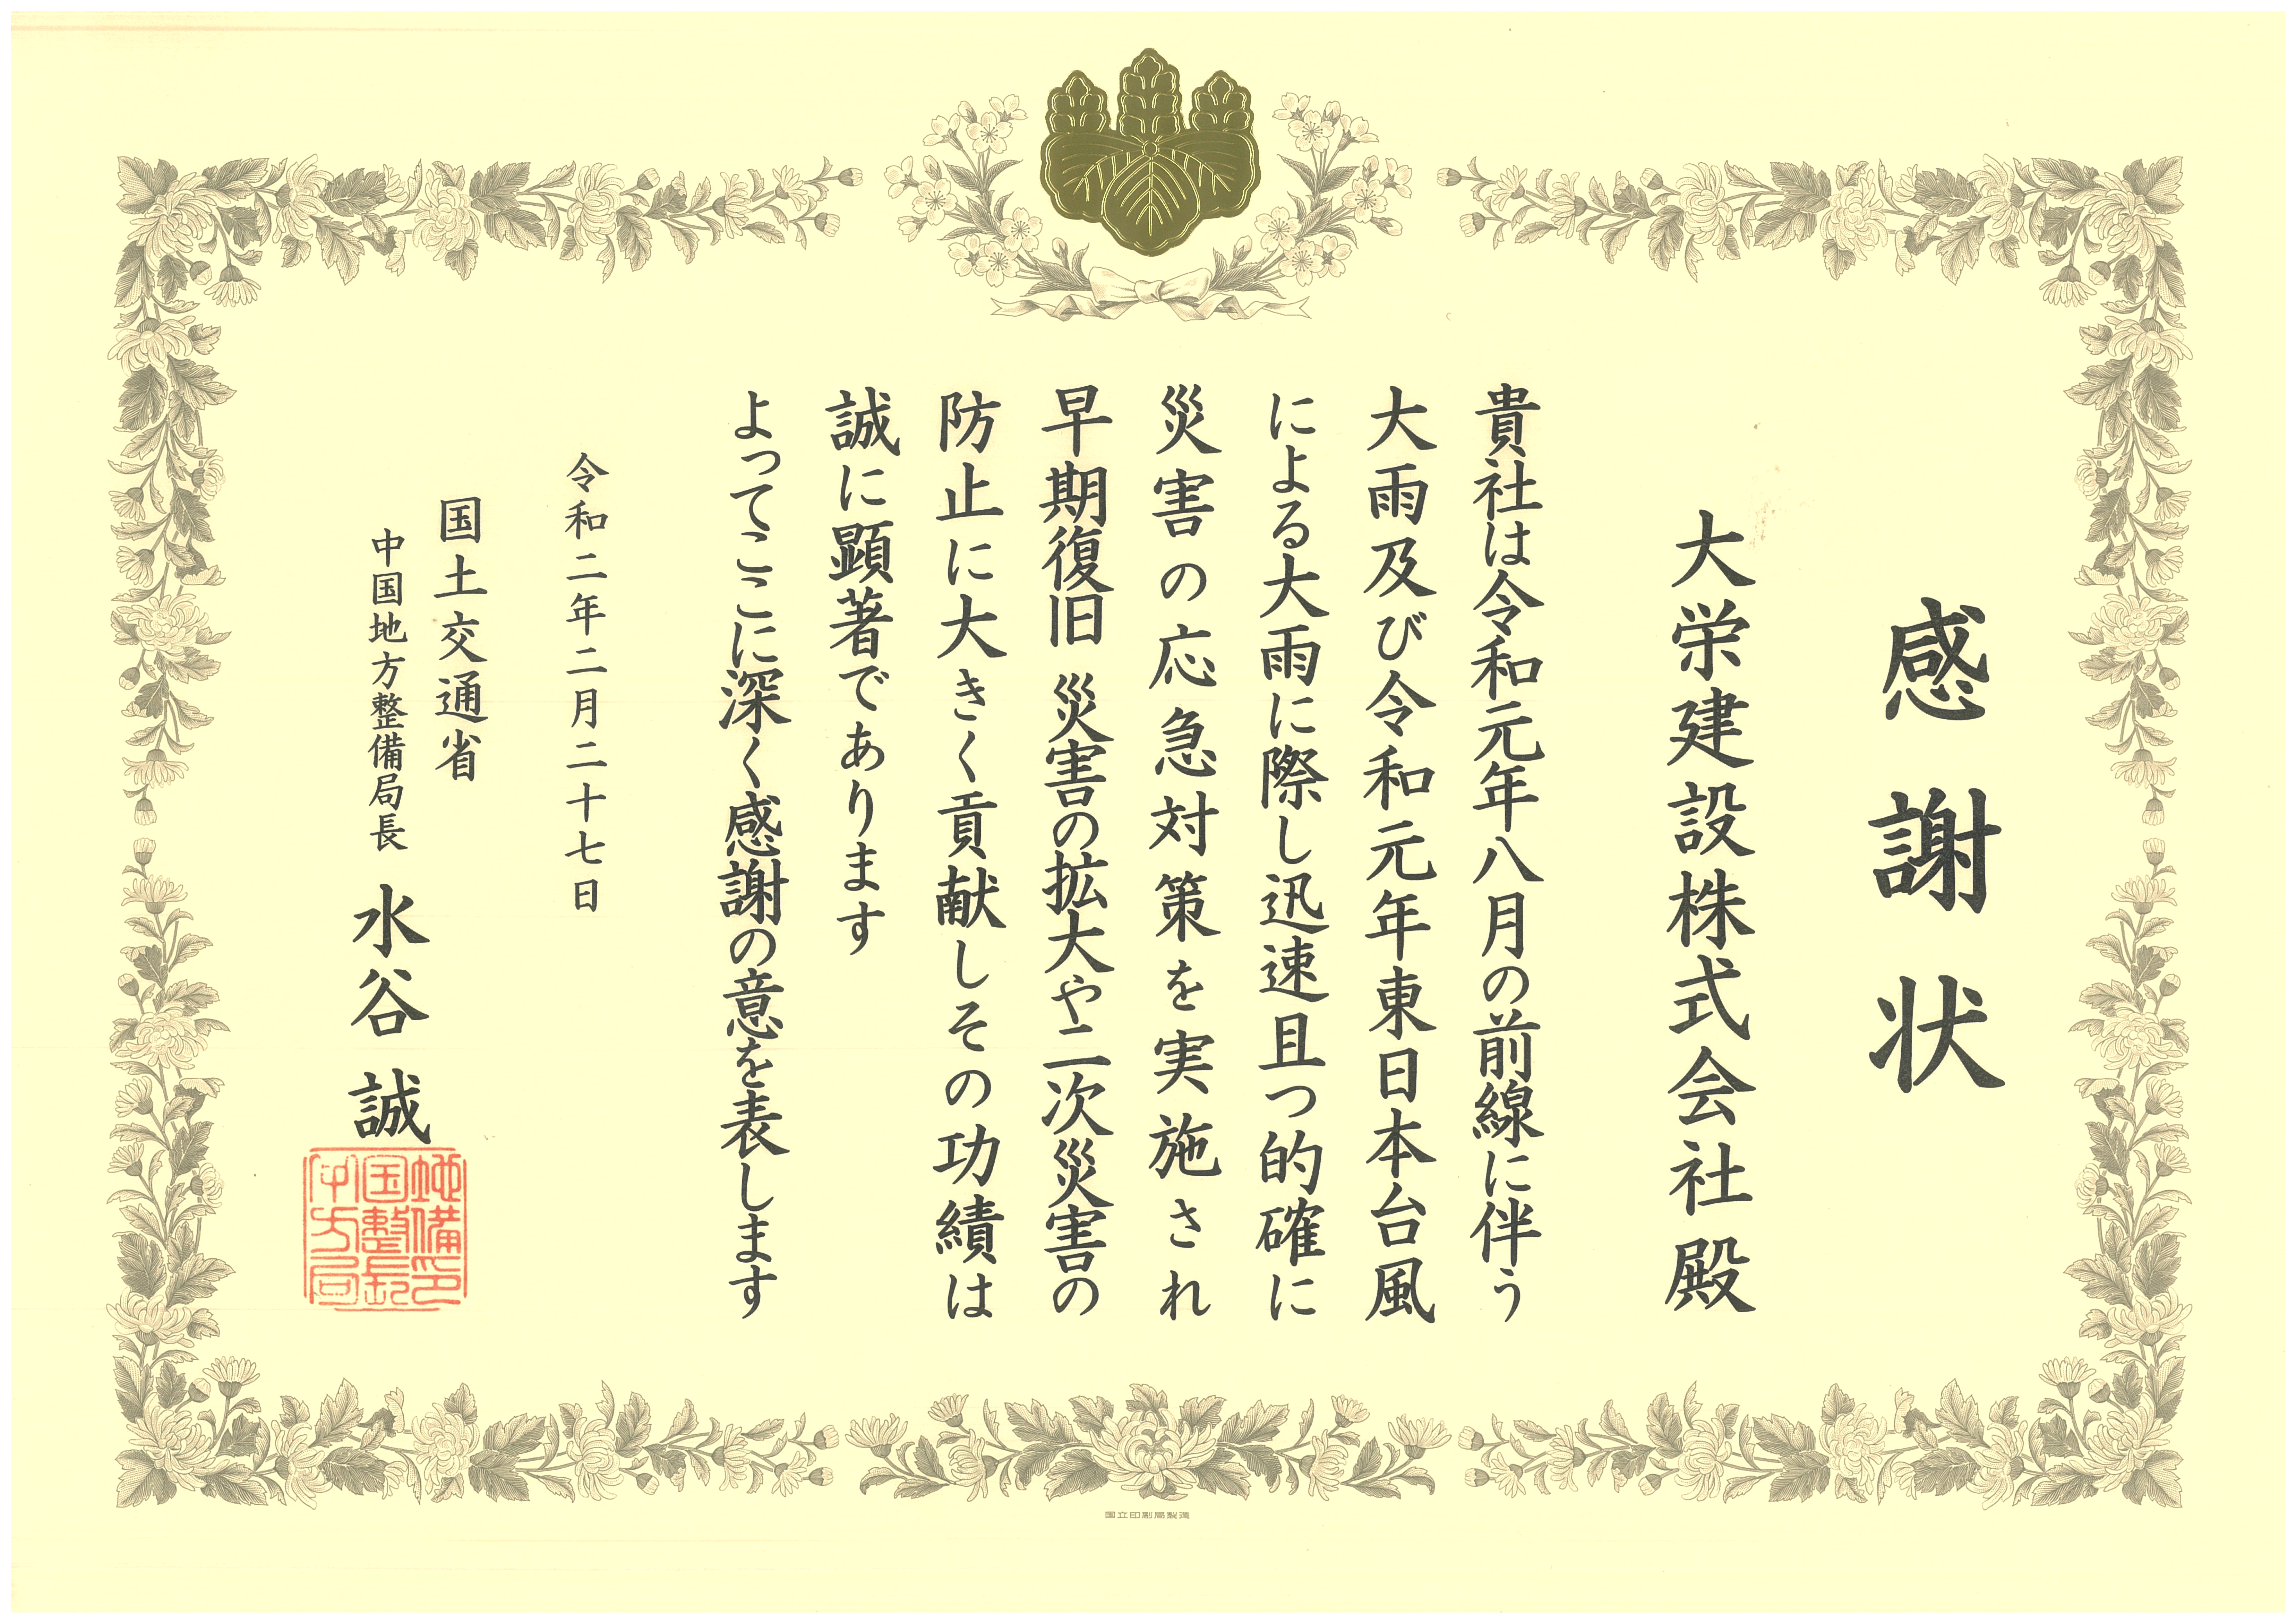 感謝状
大栄建設株式会社殿
貴社は令和元年八月の前線に伴う
大雨及び令和元年東日本台風
による大雨に際し迅速且つ的確に
災害の応急対策を実施され
早期復旧 災害の拡大や二次災害の
防止に大きく貢献しその功績は
誠に顕著であります
よってここに深く感謝の意を表します
令和二年二月二十七日
国土交通省
中国地方整備局長 水谷 誠
地備印
国整長
中方局
国立印刷局製造